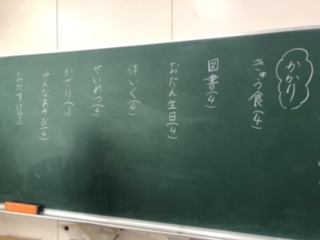 かかり
きゅう食(4)
図書(4)
おたん生日(4)
体いく(4)
せいれつ
かざり
みんなあそび(4)
おたすけ